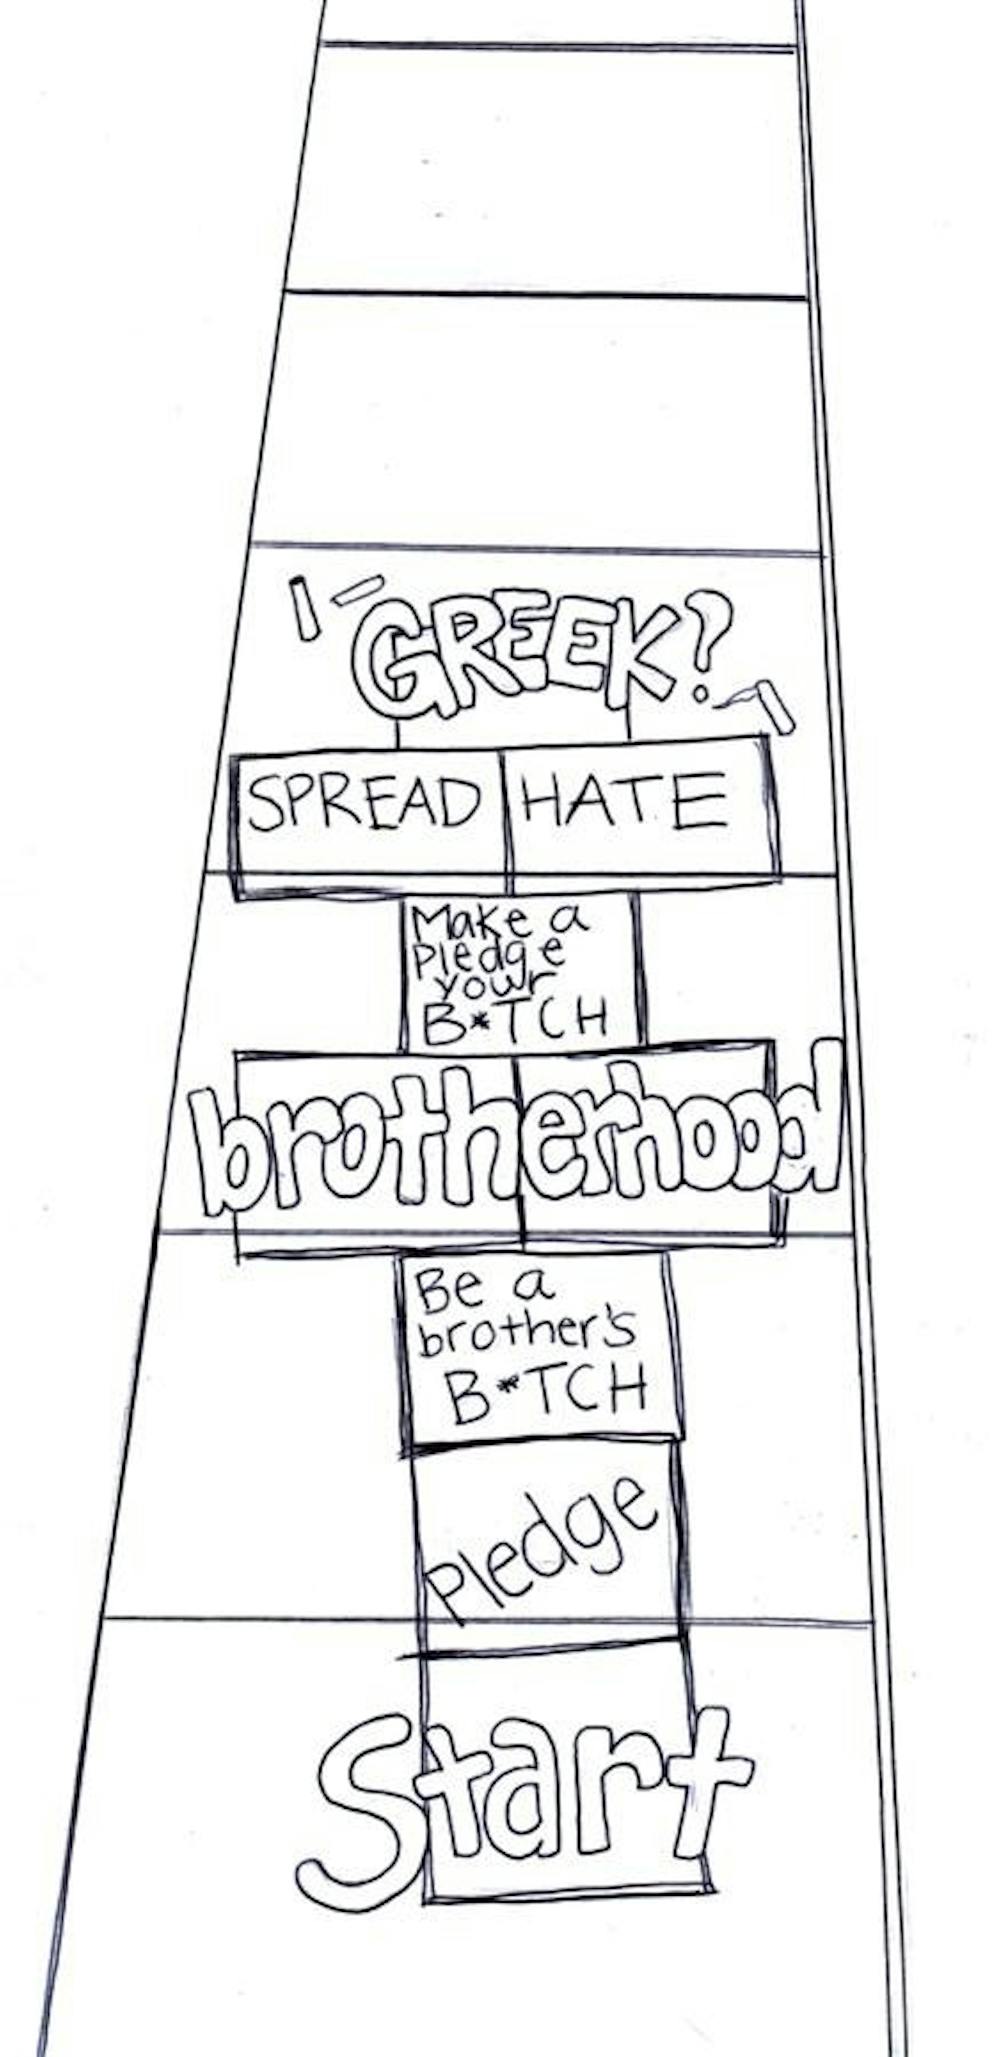 GREEK?
SPREAD HATE
Make a
pledge
your
B*TCH
brotherhood
Be a
brother's
B*TCH
Pledge
Start